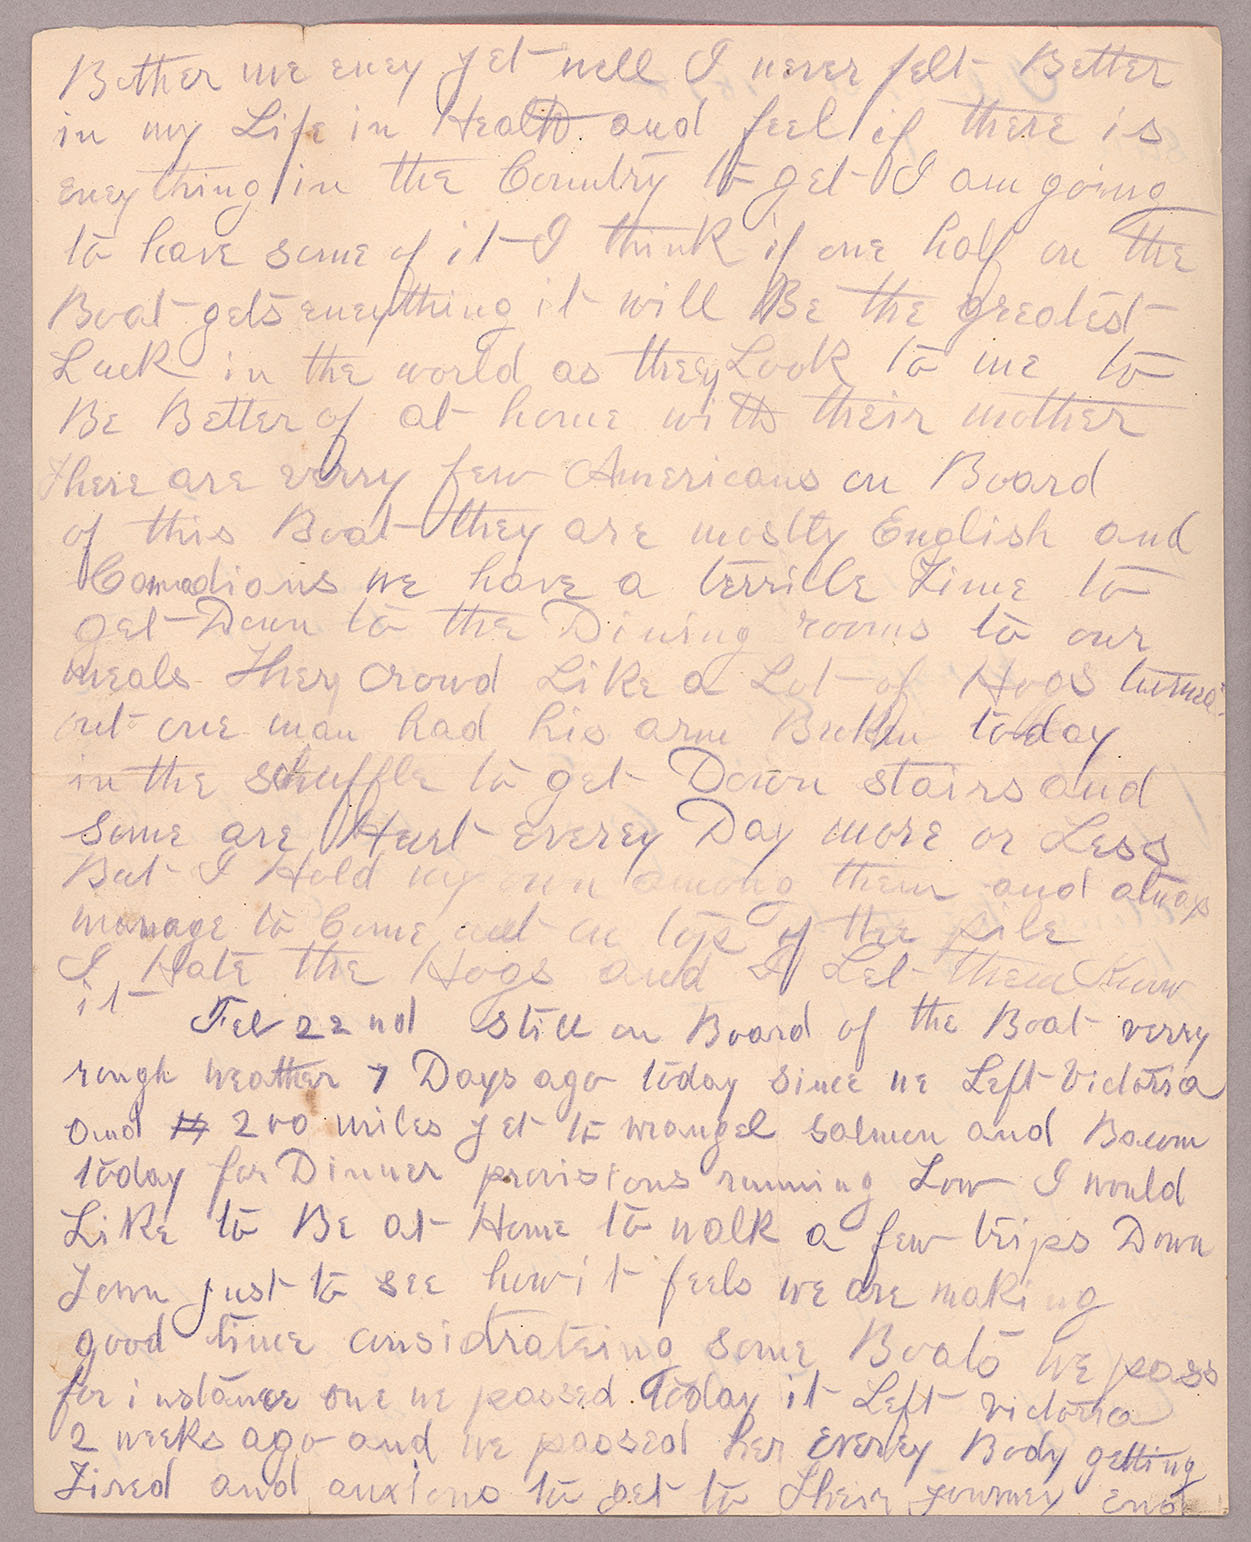 Bother me eney yet well I never felt Better
in my Life in Health and feel if there is
eneything in the Country to get I am going
to have some of it I think if one half on the
Boat gets eneything it will Be the greatest
Luck in the world as they Look to me to
Be Better of at home with their mother
There are verry few Americans on Board
of this Boat they are mostly English and
Canadians we have a terrible Time to
get Down to the Dining rooms to our
meals They Crowd Like a Lot of Hogs turned
out one man had his arm Broken today
in the schuffle to get Down stairs and
some are Hurt everey Day more or Less
But I Hold my own among them and always
manage to Come out on top of the pile
I Hate the Hogs and I Let them Know
it
Feb 22nd still on Board of the Boat verry
rough weather 7 Days ago today since we Left Victoria
and 200 miles yet to wrangel salmon and Bacon
today for Dinner provisions running Low I would
Like to Be at Home to walk a few trips Down
Town just to see how it feels we are making
good time considrateing some Boats we pass
for instance one we passed today it Left victoria
2 weeks ago and we passed her everey Body getting
Tired and anxious to get to their journey end